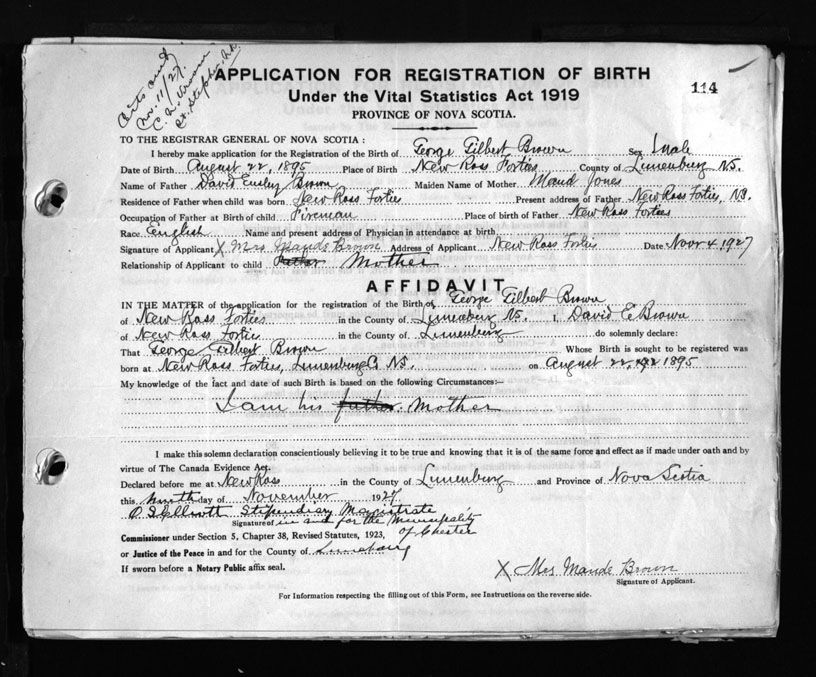 Nov. 11/27.
114
APPLICATION FOR REGISTRATION OF BIRTH
Under the Vital Statistics Act 1919
PROVINCE OF NOVA SCOTIA.
TO THE REGISTRAR GENERAL OF NOVA SCOTIA :
I hereby make application for the Registration of the Birth of George Gilbert Brown Sex Male
Date of Birth August 22, 1895 Place of Birth New Ross Forties County of Lunenburg N.S.
Name of Father David Brown Maiden Name of Mother Maud Jones
Residence of Father when child was born New Ross Forties Present address of Father New Ross Forties, N.S.
Occupation of Father at Birth of child Fireman Place of birth of Father New Ross Forties
Race English Name and present address of Physician in attendance at birth
Signature of Applicant X Mrs Maude Brown Address of Applicant New Ross Forties Date Nov 4 1927
Relationship of Applicant to child Father Mother
AFFIDAVIT
IN THE MATTER of the application for the registration of the Birth of George Gilbert Brown
of New Ross Forties in the County of Lunenburg N.S. I, David E Brown
of New Ross Forties in the County of Lunenburg do solemnly declare:
That George Gilbert Brown Whose Birth is sought to be registered was
born at New Ross Forties, Lunenburg Co N.S. on August 22, 1895
My knowledge of the fact and date of such Birth is based on the following Circumstances:—
I am his father. Mother
I make this solemn declaration conscientiously believing it to be true and knowing that it is of the same force and effect as if made under oath and by
virtue of The Canada Evidence Act.
Declared before me at New Ross in the County of Lunenburg and Province of Nova Scotia
this ninth day of November 1927.
Elliott Stipendiary Magistrate
Signature of in and for the Municipality
Commissioner under Section 5, Chapter 38, Revised Statutes, 1923, of Chester
or Justice of the Peace in and for the County of Lunenburg
If sworn before a Notary Public affix seal.
X Mrs Maude Brown
Signature of Applicant.
For Information respecting the filling out of this Form, see Instructions on the reverse side.